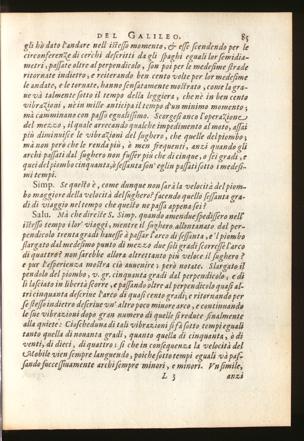 DEL GALILEO. 85
gli hò dato l'andare nell'istesso momento, & esse scendendo per le
circonferenze di cerchi descritti da gli spaghi eguali lor semidia-
metri, passate oltre al perpendicolo, son poi per le medesime strade
ritornate indietro, e reiterando ben cento volte per lor medesime
le andate, e le tornate, hanno sensatamente mostrato, come la gra-
ue và talmente sotto il tempo della leggiera, che nè in ben cento
vibrazioni, nè in mille anticipa il tempo d'un minimo momento;
mà camminano con passo egualissimo. Scorgesi anco l'operazione
del mezzo, il quale arrecando qualche impedimento al moto, assai
più diminuisce le vibrazioni del sughero, che quelle del piombo;
mà non però che le renda più, ò men frequenti, anzi quando gli
archi passati dal sughero non fusser più che di cinque, o sei gradi, e
quei del piombo cinquanta, ò sessanta son'eglin passati sotto i medesi-
mi tempi.
Simp. Se questo è, come dunque non sarà la velocità del piom-
bo maggiore della velocità del sughero? facendo quello sessanta gra-
di di viaggio nel tempo che questo ne passa appena sei?
Salu. Mà che direste S. Simp. quando amendue spedissero nell'
istesso tempo i lor' viaggi, mentre il sughero allontanato dal per-
pendicolo trenta gradi hauesse à passar l'arco di sessanta, e 'l piombo
slargato dal medesimo punto di mezzo due soli gradi scorresse l'arco
di quattro? non sarebbe allora altrettanto più veloce il sughero?
e pur l'esperienza mostra ciò auuenire: però notate. Slargato il
pendolo del piombo, v. gr. cinquanta gradi dal perpendicolo, e di
lì lasciato in libertà scorre, e passando oltre al perpendicolo quasi al-
tri cinquanta descriue l'arco di quasi cento gradi, e ritornando per
se stesso indietro descriue vn' altro poco minore arco, e continuando
le sue vibrazioni dopo gran numero di quelle si riduce finalmente
alla quiete: Ciascheduna di tali vibrazioni si fà sotto tempi eguali
tanto quella di nouanta gradi, quanto quella di cinquanta, ò di
venti, di dieci, di quattro: sì che in conseguenza la velocità del
Mobile vien sempre languendo, poiche sotto tempi eguali và pas-
sando successiuamente archi sempre minori, e minori. Vn simile,
L 3 anzi